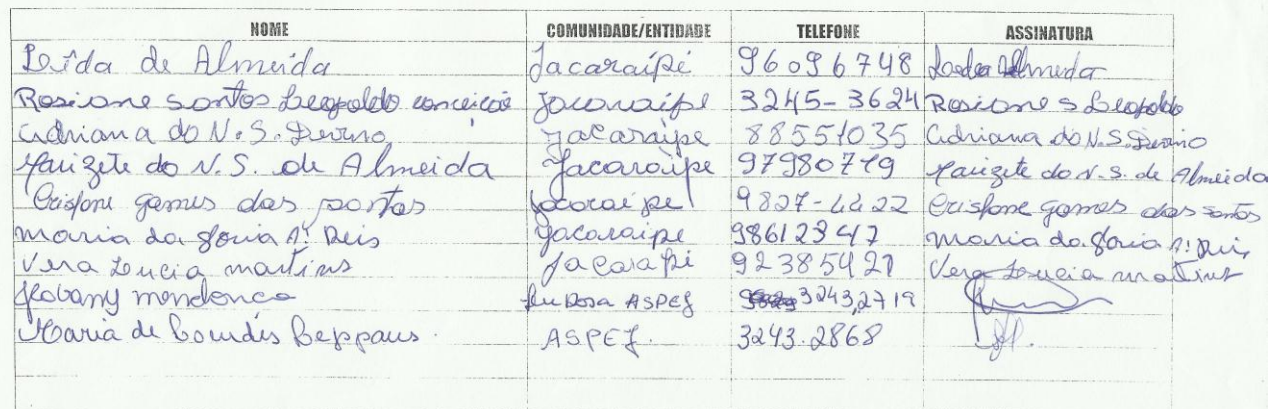 NOME COMUNIDADE/ENTIDADE TELEFONE ASSINATURA
Leîda de Almeida Jacaraípi 96096748 Leida Almeida
Rosiane Santos Leopoldo conceição Jacaraipe 3245-3624 Rosiane S Leopoldo
Adriana do N.S. Jacaraipe 88551035 Adriana do N.S.
Marizete do N.S. de Almeida Jacaraipe 97980719 Marizete do N.S. de Almeida
gomes dos santos Jacaraipe 9827-4222 gomes dos santos
Maria da Gloria Reis Jacaraipe 98612347 Maria da Gloria Reis
Vera Lucia martins Jacarapi 92385421 Vera Lucia martins
Jeobany mendonca ASPEJ 3243,2719
Maria de Lourdes ASPEJ. 3243.2868